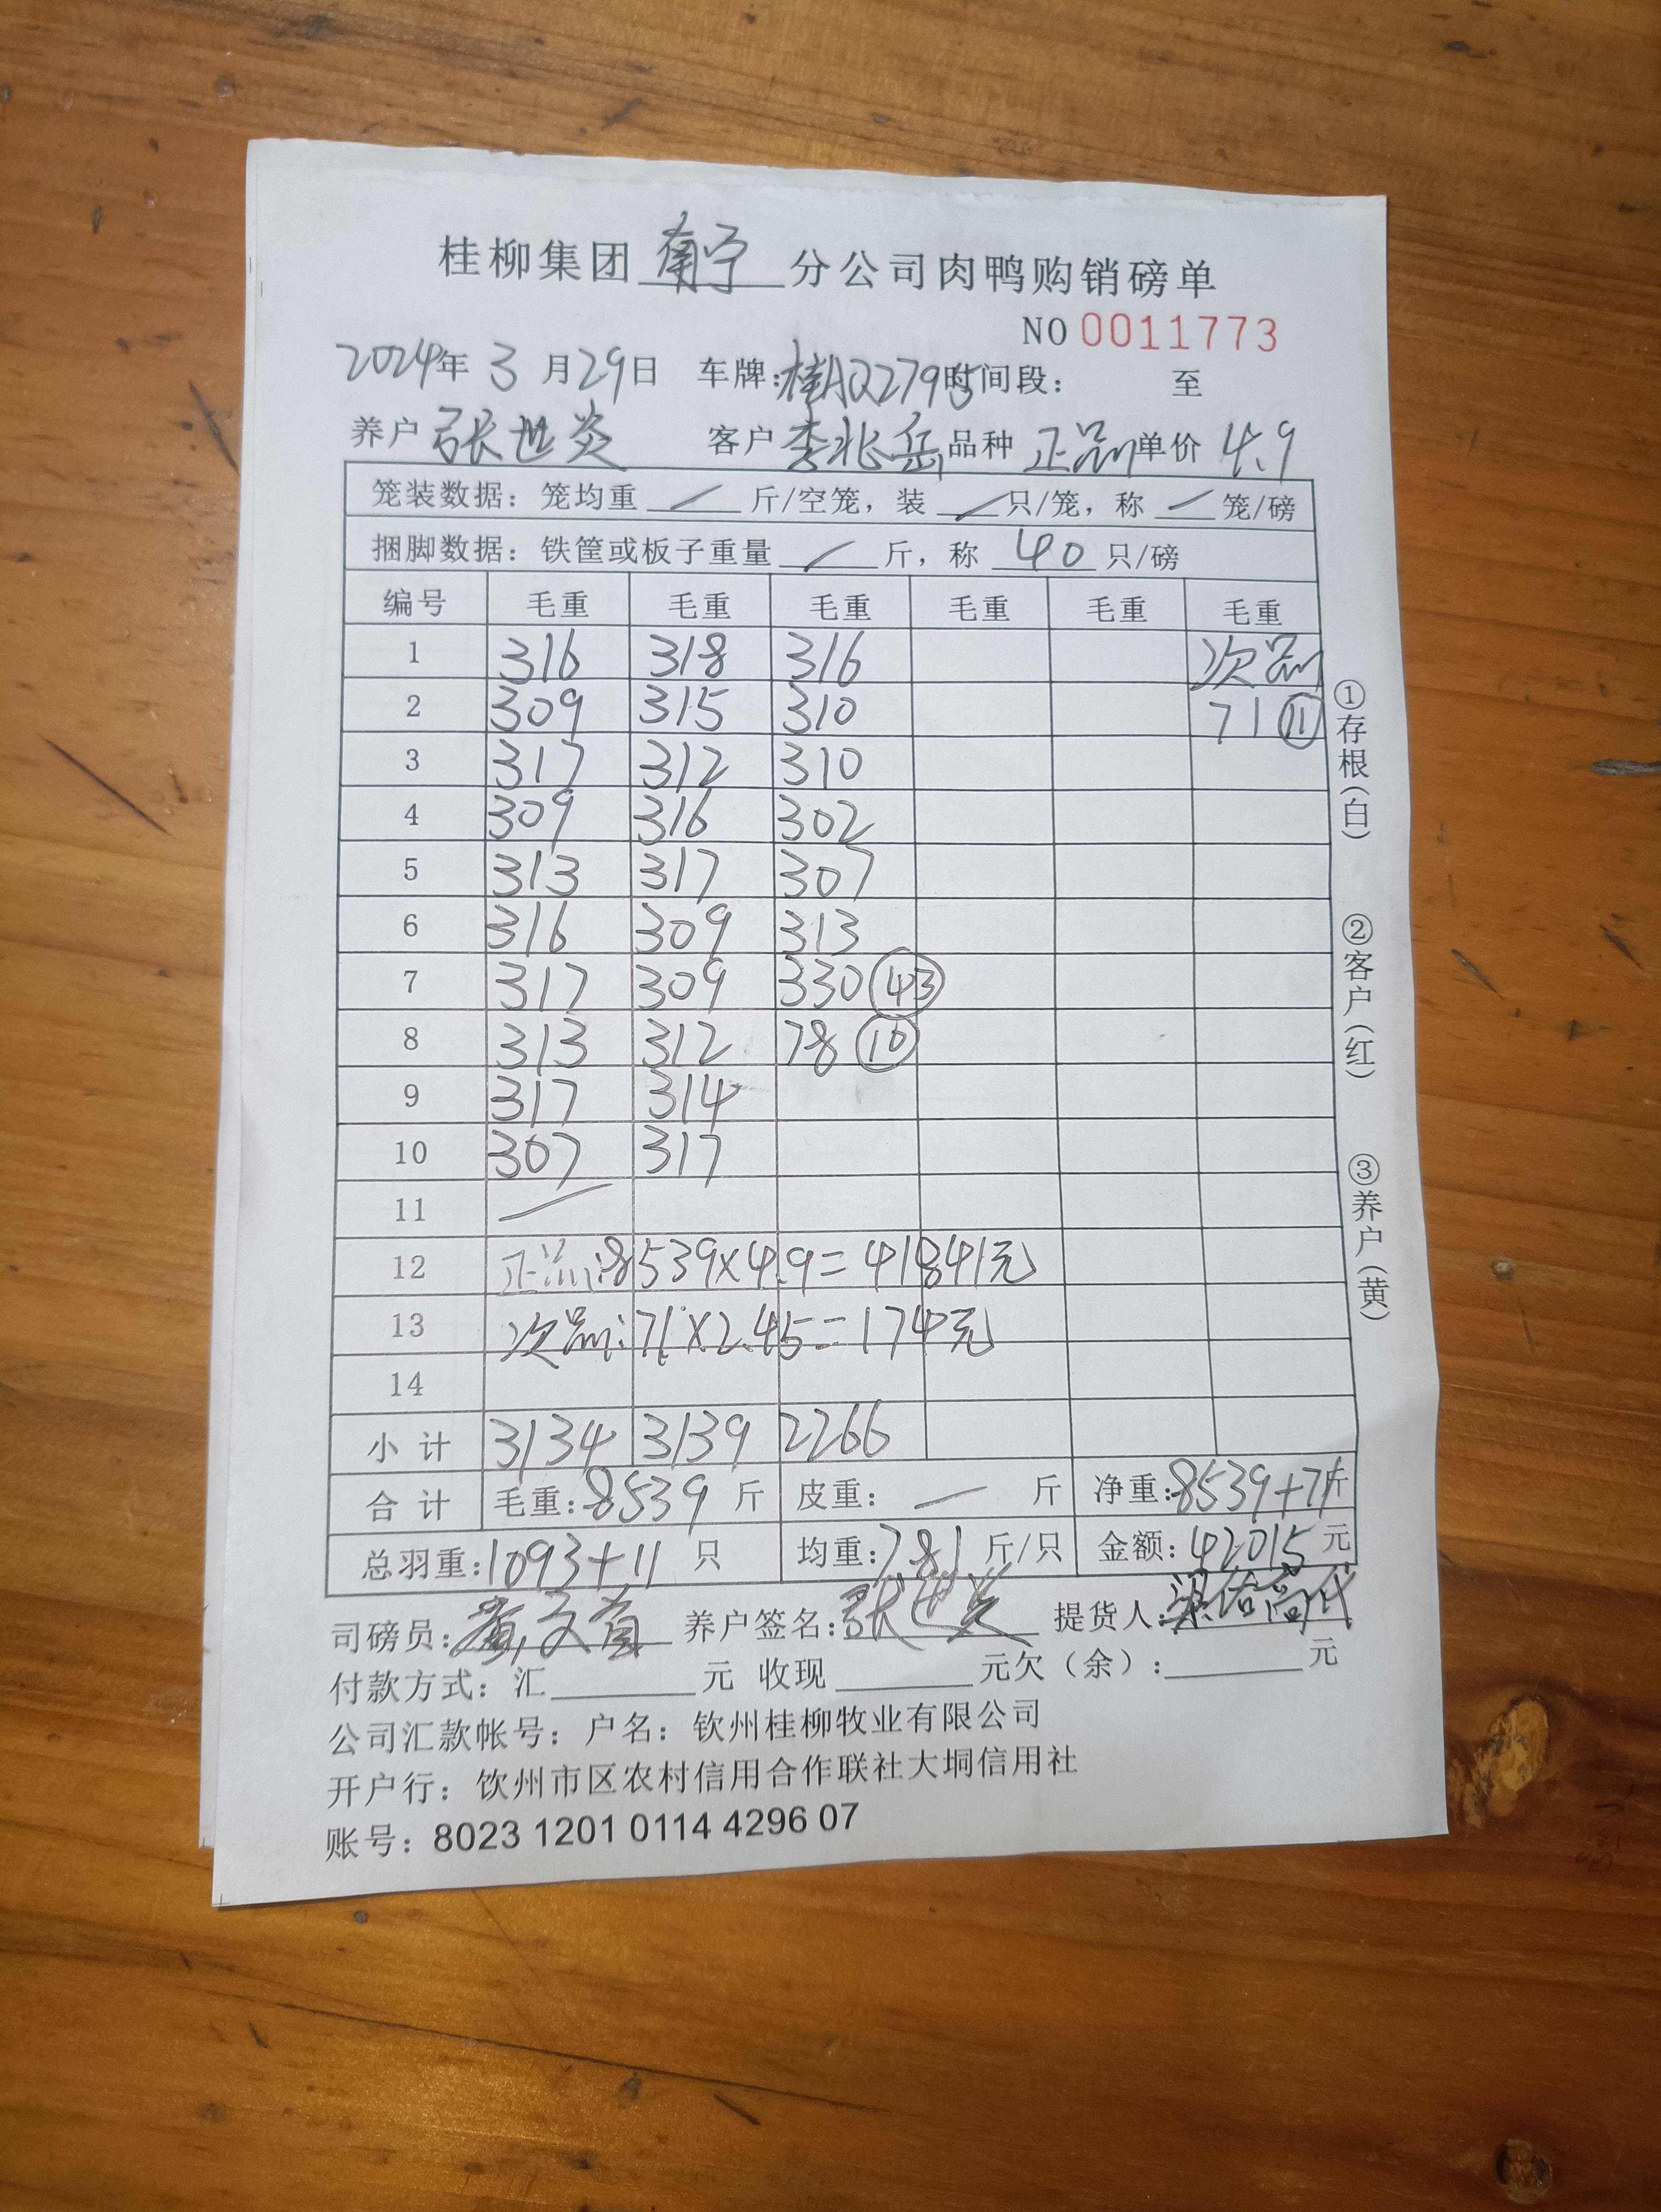 桂柳集团南宁分公司肉鸭购销磅单
NO 0011773
2024年 3 月29日 车牌:桂AQ2795时间段: 至
养户 张世炎 客户 李兆岳 品种 正品 单价 4.9
笼装数据: 笼均重 / 斤/空笼, 装 / 只/笼, 称 / 笼/磅
捆脚数据: 铁筐或板子重量 / 斤, 称 40 只/磅
编号 毛重 毛重 毛重 毛重 毛重 毛重
1 316 318 316 次品
2 309 315 310 71 ⑪
3 317 312 310
4 309 316 302
5 313 317 307
6 316 309 313
7 317 309 330 ㊸
8 313 312 78 ⑩
9 317 314
10 307 317
11 /
12 正品:8539×4.9=41841元
13 次品:71×2.45=174元
14
小 计 3134 3139 2266
合 计 毛重:8539 斤 皮重: — 斤 净重:8539+71斤
总羽重:1093+11 只 均重:7.81 斤/只 金额:42015 元
司磅员: 养户签名:张世炎 提货人:
付款方式: 汇 元 收现 元欠(余): 元
公司汇款帐号: 户名: 钦州桂柳牧业有限公司
开户行: 钦州市区农村信用合作联社大垌信用社
账号: 8023 1201 0114 4296 07
①存根(白)
②客户(红)
③养户(黄)